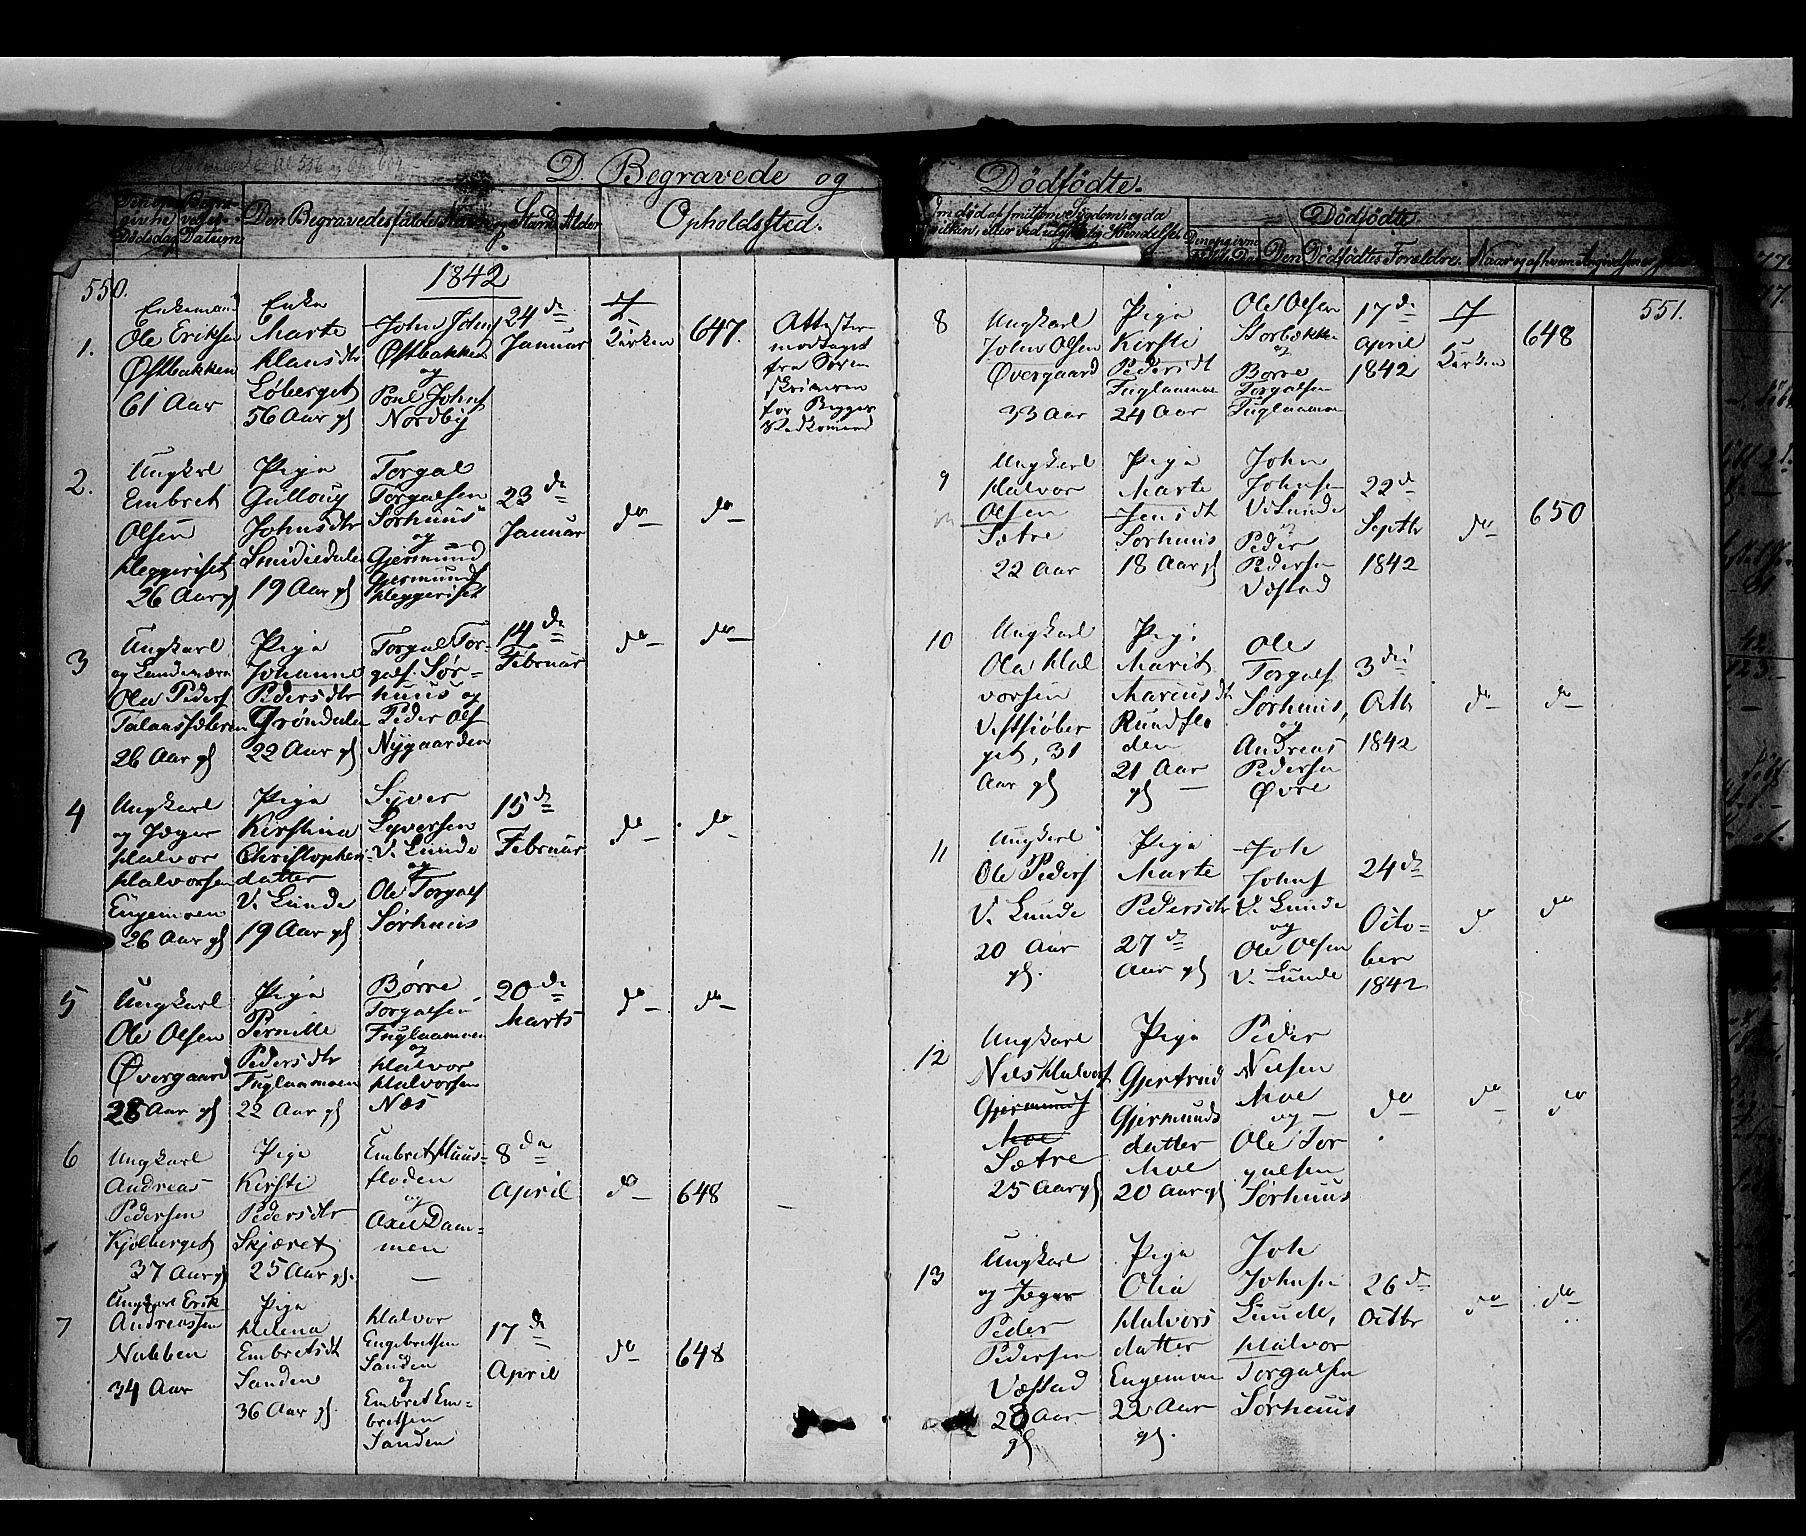 D. Begravede og
Dödfödte.
Den Begravedes fulde Navn og Stand
Alder
Opholdssted.
Dödfödte
Den Dödfödtes Forældre.
550.
1842
1.
Enkemand
Ole Eriksen
Østbakken
61 Aar
Enke
Marte
Klausdtr
Løberget
56 Aar gl
John Johns
Østbakken
og
Poul Johns
Nordby
24de
Januar
i
Kirken
647.
Attester
modtaget
fra Soren
skriveren
for Begge
Vedkomend
2.
Ungkarl
Embret
Olsen
Kleggeriset
26 Aar gl
Pige
Gulloug
Johnsdtr
Smidiedale
19 Aar gl
Torgal
Torgalsen
Sørhuus
og
Gjermund
Gjermunds
Kleggeriset
23de
Januar
do
do
3
Ungkarl
og Landeværn
Ola Peders
Talaassæteren
26 Aar gl
Pige
Johanne
Pedersdtr
Grøndalen
22 Aar gl
Torgal Tor-
gals. Sør-
huus og
Peder Ols
Nygaarden
14de
Februar
do
do
4
Ungkarl
og Jæger
Halvor
Halvorsen
Engemoen
26 Aar gl
Pige
Kirstina
Christophers
datter
V. Lunde
19 Aar gl
Syver
Syversen
V. Lunde
og
Ole Torgals
Sørhuus
15de
Februar
do
do
5
Ungkarl
Ole Olsen
Øvergaard
28 Aar gl
Pige
Pernille
Pedersdtr
Fuglaamoen
22 Aar gl
Børre
Torgalsen
Fuglaamoen
og
Halvor
Halvorsen
Næs
20de
Marts
do
do
6
Ungkarl
Andreas
Pedersen
Kjølberget
37 Aar gl
Pige
Kirsti
Pedersdtr
Skjæret
25 Aar gl.
Embret Huus-
floden
og
Axel Dam-
men
8de
April
do
648
7
Ungkarl Erik
Andreassen
Nabben
34 Aar
Pige
Helena
Embretsdt
Sanden
36 Aar gl.
Halvor
Engebretsen
Sanden
og
Embret Em-
bretsen
Sanden
17de
April
do
648
551.
8
Ungkarl
John Olsen
Øvergaard
33 Aar
Pige
Kirsti
Pedersdt
Fuglaamoe
24 Aar
Ole Olsen
Storbækken
og
Børre
Torgalsen
Fuglaamoe
17de
April
1842
i
Kirken
648
9
Ungkarl
Halvor
Olsen
Sætre
22 Aar
Pige
Marte
Jensdt
Sørhuus
18 Aar gl
John
Johnsen
V. Lunde
og
Peder
Pedersen
Væstad
22de
Septbr
1842
do
650
10
Ungkarl
Ola Hal
vorsen
Vestsjøber
get, 31
Aar gl
Pige
Marit
Mariusdtr
Rundflo
den
21 Aar
gl
Ole
Torgals
Sørhuus,
og
Andreas
Pedersen
Øvre
3die
Octbr
1842
do
do
11
Ungkarl
Ole Peders
V. Lunde
20 Aar
gl.
Pige
Marte
Pedersdtr
27de
Aar gl
Joh
Johns
V. Lunde
og
Ole Olsen
V. Lunde
24de
Octo-
ber
1842
do
do
12
Ungkarl
Nils Halvors
Gjermunds
Moe
Sætre
25 Aar gl
Pige
Gjertrud
Gjermunds
datter
Moe
20 Aar gl
Peder
Nielsen
Moe
og
Ole Tor
galsen
Sørhuus
do
do
do
13
Ungkarl
og Jæger
Peder
Pedersen
Væstad
28 Aar
gl
Pige
Olia
Halvors
datter
Engemoe
22 Aar
gl.
Joh
Johnsen
Lunde,
Halvor
Torgalsen
Sørhuus
26de
Octbr
do
do